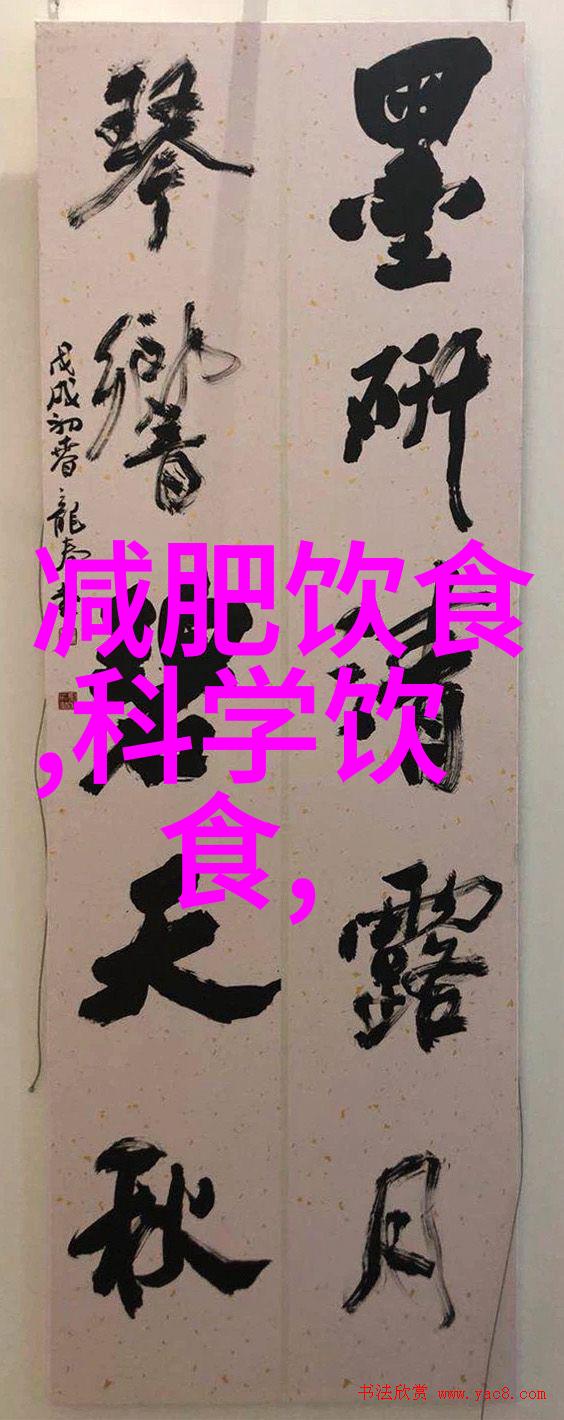 墨研清露月
琴響碧天秋
戊戌初春龍
减肥饮食
,科学饮
食,
书法欣赏 www.yac8.com